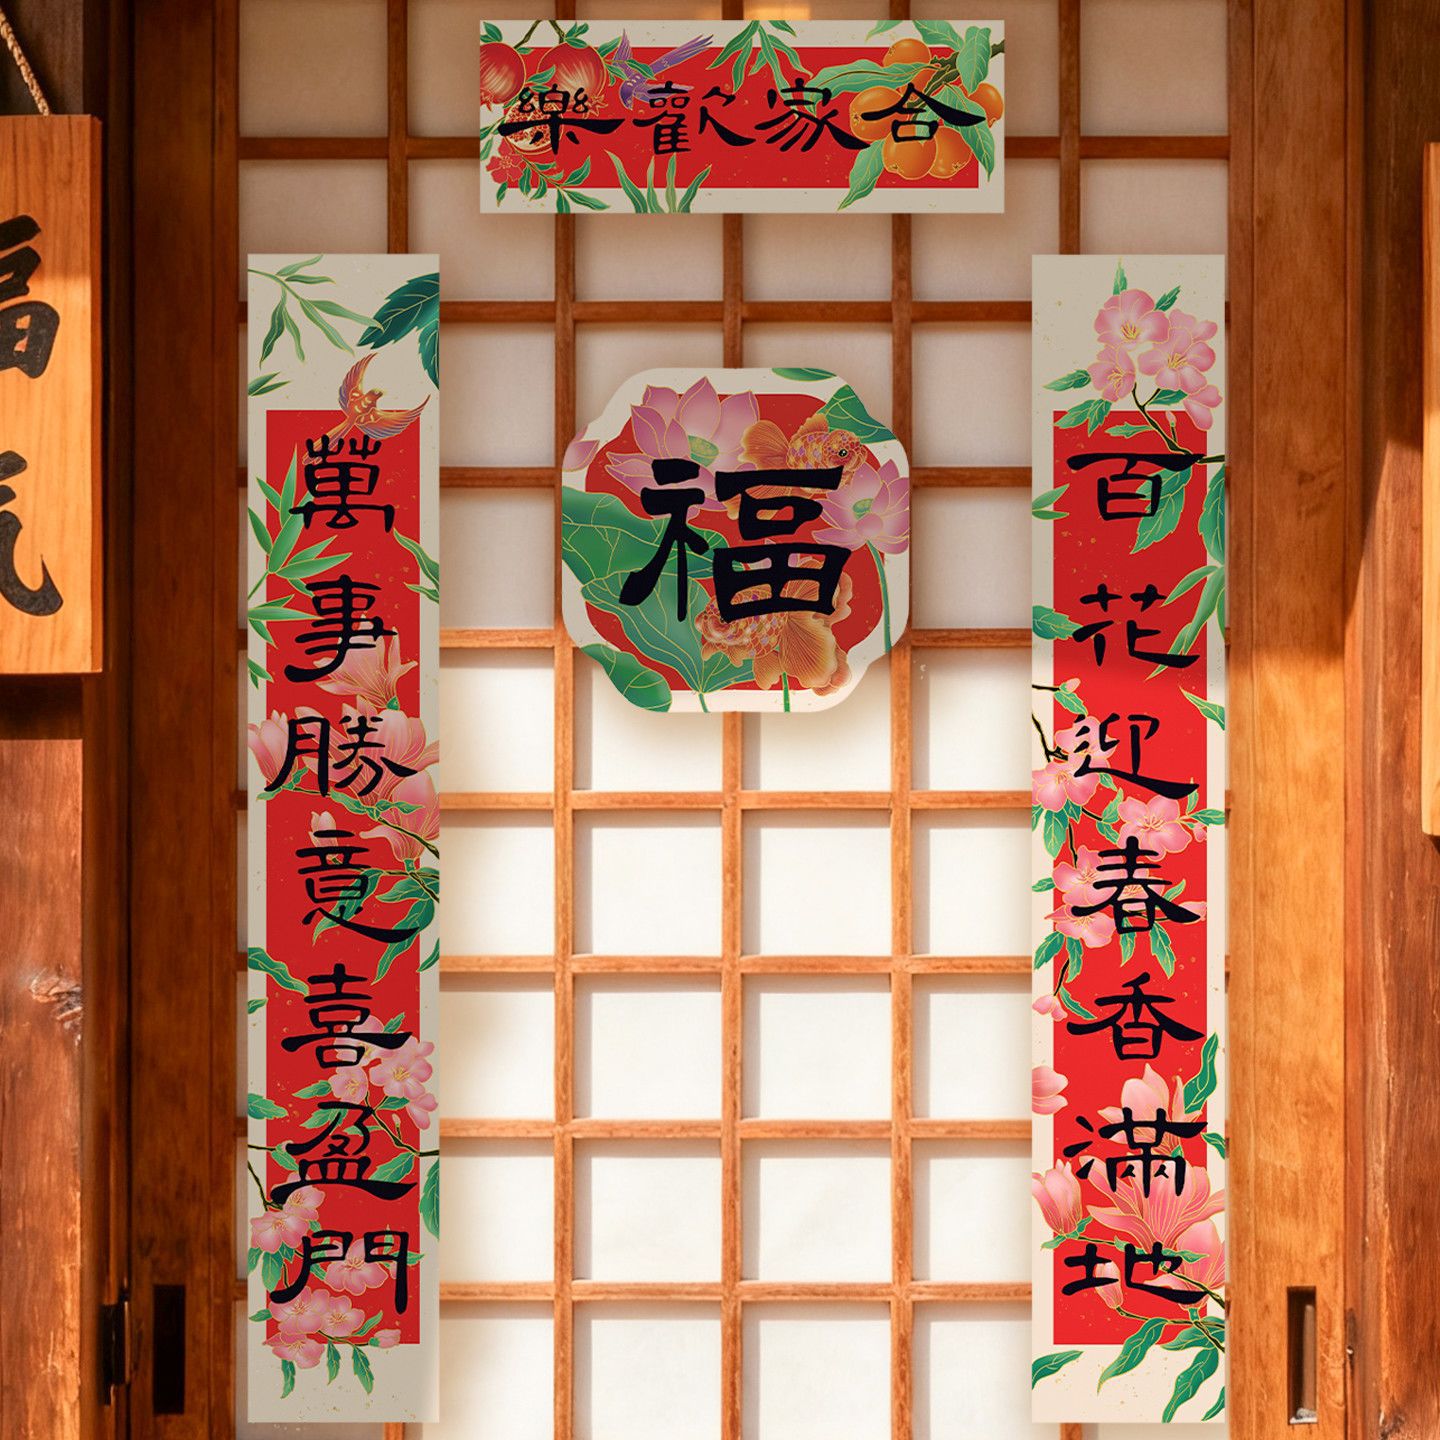 合家歡樂
百花迎春香滿地
萬事勝意喜盈門
福
福